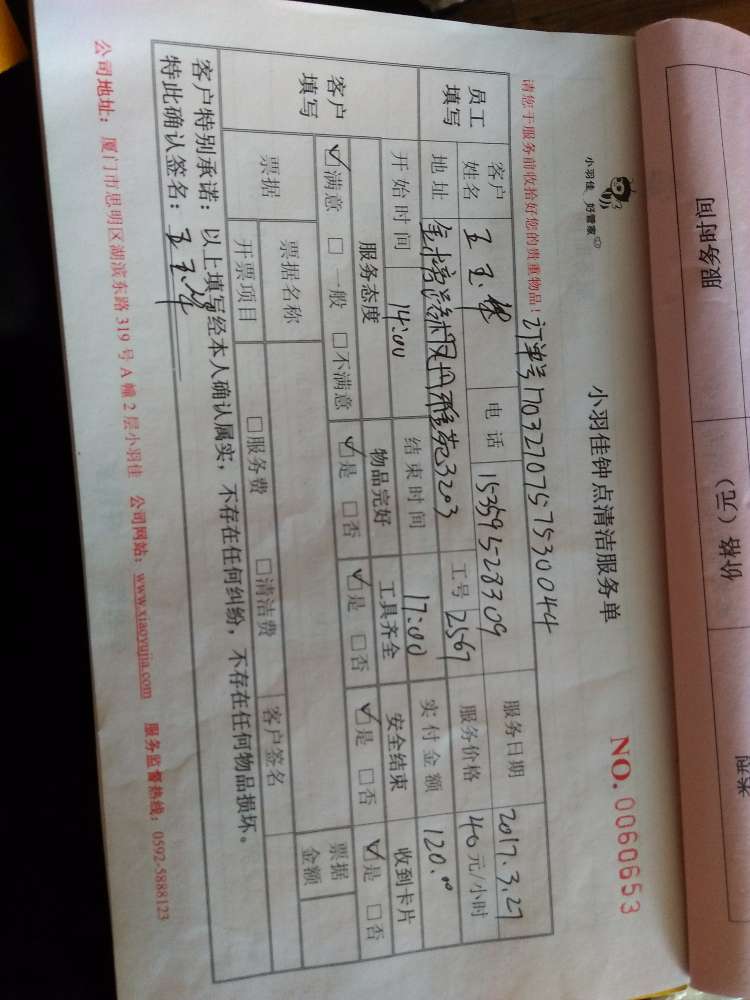 小羽佳 好管家
小羽佳钟点清洁服务单
NO. 0060653
请您于服务前收拾好您的贵重物品！ 订单号1703270757530044
员工填写 客户姓名 王玉 电话 15359528309 服务日期 2017.3.27
地址 凤凹雅苑3203 工号 2567 服务价格 40元/小时
开始时间 14:00 结束时间 17:00 实付金额 120.00
客户填写 服务态度 物品完好 工具齐全 安全结束 收到卡片
☑满意 □一般 □不满意 ☑是 □否 ☑是 □否 ☑是 □否 ☑是 □否
票据 票据名称 票据金额
开票项目 □服务费 □清洁费 客户签名
客户特别承诺：以上填写经本人确认属实，不存在任何纠纷，不存在任何物品损坏。
特此确认签名：王玉
公司地址：厦门市思明区湖滨东路319号A幢2层小羽佳 公司网站：www.xiaoyujia.com 服务监督热线：0592-5888123
服务时间
价格（元）